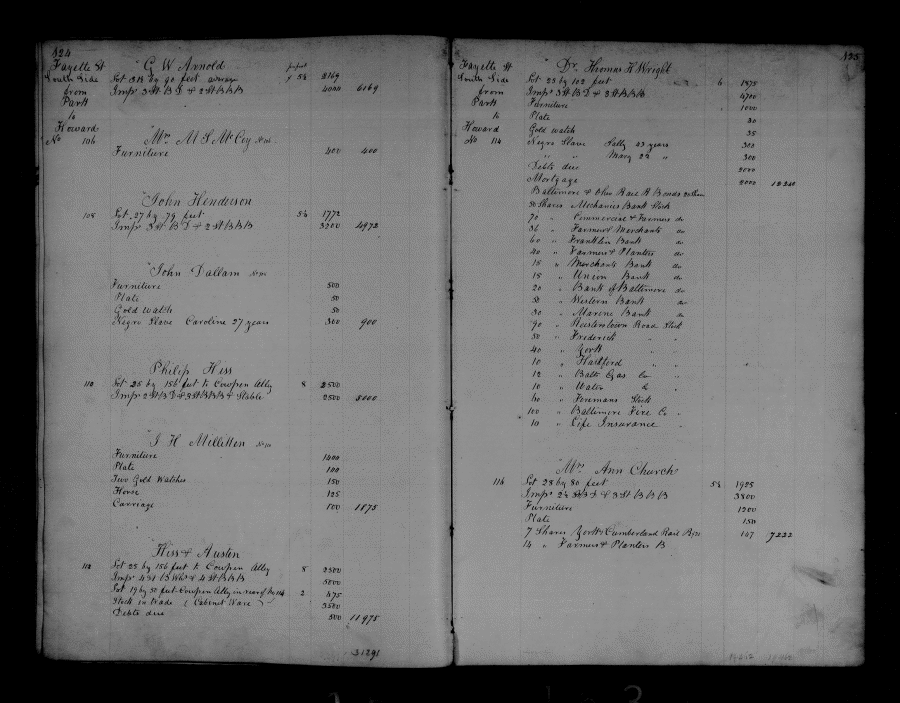 124
Fayette St
South Side
from
Park
to
Howard
No 106
G W Arnold
per foot
Lot by 90 feet average 5½ 2169
Imps 3 St B D & 2 St B B B 4000 6169
Mrs M S McCoy
Furniture 400 400
John Henderson
108 Lot 27 by 79 feet 5¼ 1772
Imps 3 St B D & 2 St B B B 3200 4972
John Dallam
Furniture 500
Plate 50
Gold Watch 50
Negro Slave Caroline 27 years 300 900
Philip Hiss
110 Lot 25 by 156 feet to Cowpen Alley 8 2500
Imps 2 St B D & 3 St B B B & Stable 2500 5000
J H Milliken
Furniture 1400
Plate 100
Two Gold Watches 150
Horse 125
Carriage 100 1875
Hiss & Austen
112 Lot 25 by 156 feet to Cowpen Alley 8 2500
Imps 4 St B Whs & 4 St B B B 5000
Lot 19 by 50 feet Cowpen Alley in rear of No 114 2 475
Stock in Trade (Cabinet Ware) 3500
Debts due 500 11975
31291
125
Fayette St
South Side
from
Park
to
Howard
No 114
Dr Thomas H Wright
Lot 25 by 102 feet 6 1875
Imps 3 St B D & 2 St B B B 4700
Furniture 1000
Plate 30
Gold Watch 35
Negro Slave Sally 23 years 300
" " Mary 22 " 300
Debts due 2000
Mortgage 2000 12240
Baltimore & Ohio Rail R Bonds
50 Shares Mechanics Bank Stock
70 " Commercial & Farmers do
36 " Farmers & Merchants do
60 " Franklin Bank do
40 " Farmers & Planters do
15 " Merchants Bank do
15 " Union Bank do
20 " Bank of Baltimore do
50 " Western Bank do
30 " Marine Bank do
90 " Reisterstown Road Stock
50 " Frederick " "
40 " York " "
10 " Hartford " "
12 " Balto Gas Co "
10 " Water Co "
" Firemans Stock
100 " Baltimore Fire Co "
10 " Life Insurance "
Mrs Ann Church
116 Lot 28 by 80 feet 5½ 1925
Imps 2½ St B D & 3 St B B B 3800
Furniture 1200
Plate 150
7 Shares York & Cumberland Rail 147 7222
14 " Farmers & Planters B